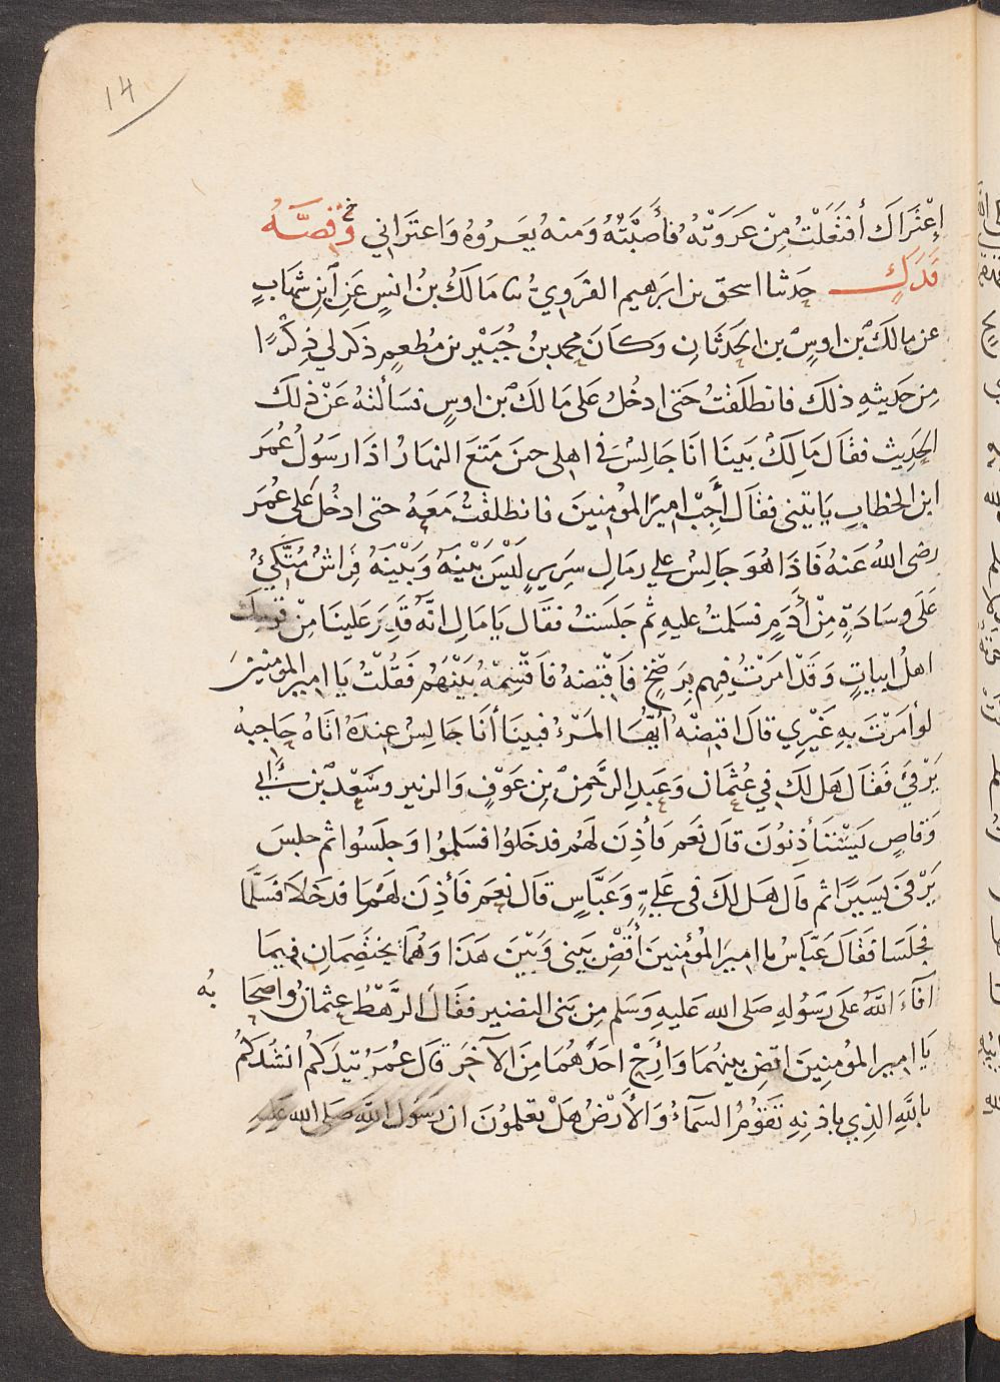 14
إِعْتَرَاكَ أفْتَعَلْتَ مِنْ عَرَوْتُهُ فَأَصَبْتُهُ وَمنهُ يَعرُوهُ وَاعتَرَانِي خ وقِصَّةُ
فَدَكٍ حَدثنا اسحق بن ابرَهيم الفَروِيُّ ثنا مَالكُ بنُ انسٍ عَنِ ابنِ شِهَابٍ
عن مالكِ بن اوسٍ بن الحَدَثَانِ وَكانَ محمد بنُ جُبَيْر بن مُطعِمٍ ذكر لي ذِكْرًا
مِن حَديثِهِ ذلكَ فانطلَقتُ حَتى ادخُلُ عَلى مَالكِ بن اوسٍ فسَألتهُ عَنْ ذلكَ
الحَدِيث فقَال مَالِكٌ بَينَا انَا جَالِسٌ في اهلى حينَ مَتَعَ النهَارُ اذَا رَسُولُ عُمَرَ
ابن الخطابِ يَاتيني فقَال أَجِبْ اميرَ المؤمِنينَ فانطلقتُ مَعَهُ حتى ادخُلَ عَلى عُمَرَ
رضى اللهُ عَنهُ فَاذَا هُوَ جَالِسٌ على رمَالِ سَرِيرٍ لَيْسَ بَيْنَهُ وَبَيْنَهُ فِرَاشٌ مُتَّكِئٌ
عَلَى وِسَادَةٍ مِنْ أَدَمٍ فسَلمتُ عليهِ ثم جَلَستُ فقَال يَا مَالِ انَّهُ قَدِمَ عَلينَا مِنْ قومِكَ
اهلُ ابياتٍ وَقَدْ امَرْتُ فيهِم بِرَضْخٍ فَاقْبِضهُ فاقْسِمْهُ بَيْنَهُم فَقُلْتُ يَا امير المؤمنينَ
لو أمَرْتَ بهِ غَيْرِي قالَ اقبِضْهُ أَيُّهَا المَرْءُ فبينَا أنَا جَالِسٌ عِندَهُ اتَاهُ حَاجبهُ
يَرْفَئُ فَقَال هَل لكَ في عُثمَان وَعَبدِ الرَّحمنِ بنِ عَوْفٍ وَالزبير وسَعْد بن أبي
وَقاصٍ يَسْتَأذِنُونَ قالَ نَعَم فأذِنَ لَهُم فدخَلوُا فسَلموُا وَجلَسُوا ثم جلسَ
يَرْفَى يَسيرًا ثم قال هَل لكَ في عَليٍّ وَعَبَّاسٍ قال نعَم فَأذِنَ لهُمَا فدَخَلاَ فسَلَّمَا
فجلَسَا فقَالَ عَبّاسٌ يا اميرَ المُؤمِنينَ أقْضِ بَينى وَبَيْنَ هَذَا وَهُمَا يختَصِمَانِ فيمَا
افَاءَ اللهُ عَلَى رَسُولهِ صَلى الله عَليهِ وَسَلم مِن بَنى النضير فقَالَ الرَّهْطُ عثمانُ واصحَا بُه
يَا امير المؤمِنينَ اقضِ بينهُمَا وَأَرِحْ احَدَهُمَا مِنَ الآخَر قالَ عُمَرُ تيدَكُم انشُدكُمْ
باللهِ الذِي باذنِهِ تقوُمُ السَماءُ وَالأَرْضُ هَلْ تعلمُونَ ان رَسوُل اللهِ صَلى الله عَليهِ